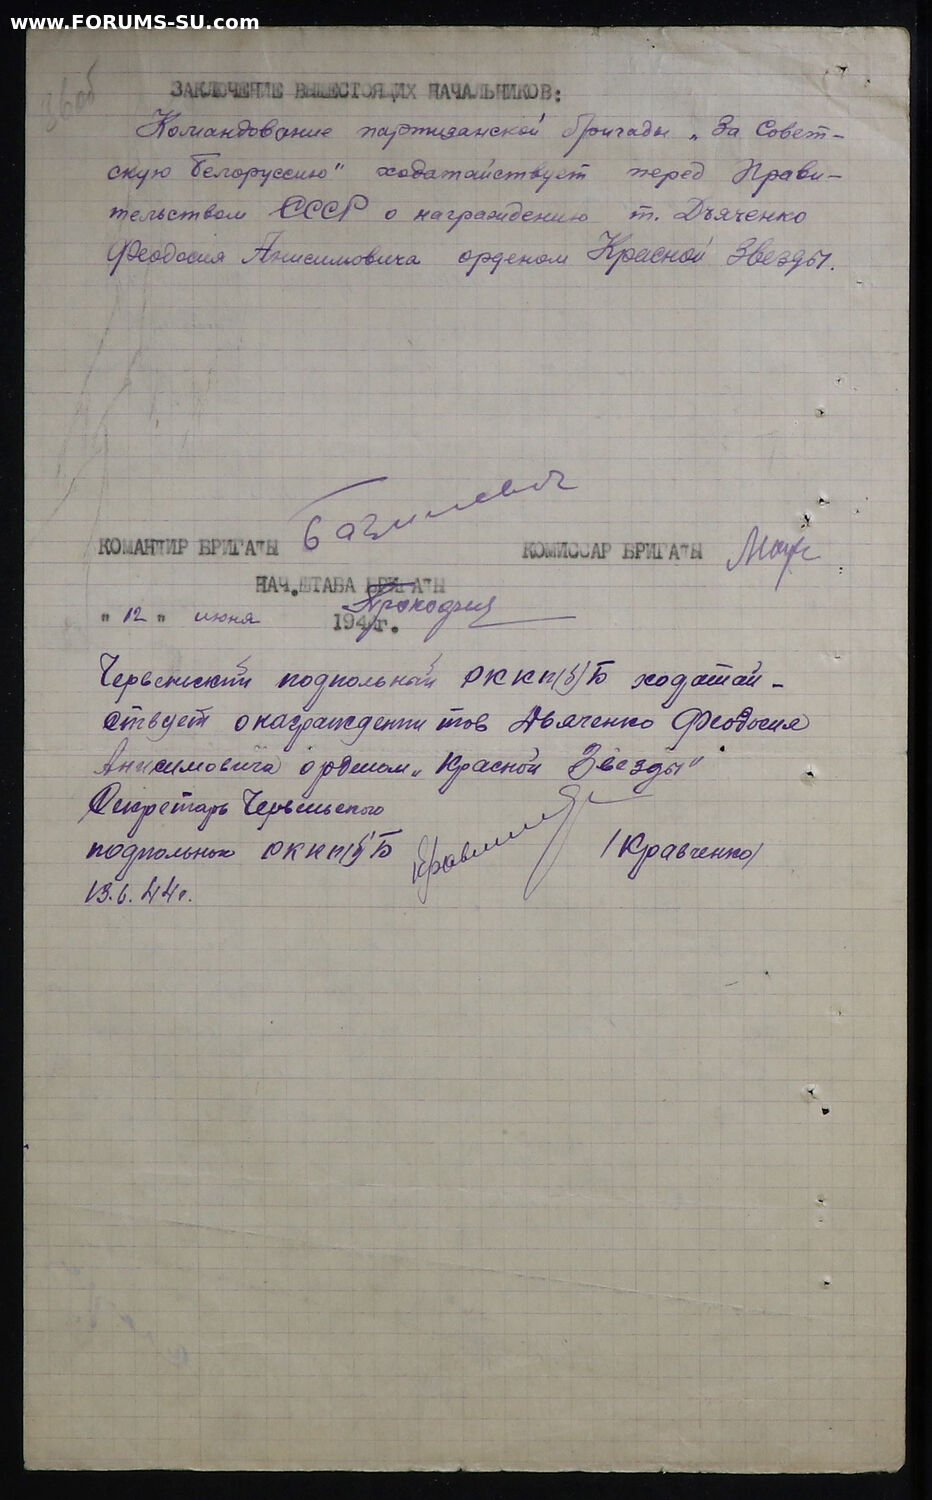 www.FORUMS-SU.com
36об
ЗАКЛЮЧЕНИЕ ВЫШЕСТОЯЩИХ НАЧАЛЬНИКОВ:
Командование партизанской бригады „За Совет-
скую Белоруссию" ходатайствует перед Прави-
тельством СССР о награждению т. Дьяченко
Феодосия Анисимовича орденом Красной Звезды.
КОМАНДИР БРИГАДЫ КОМИССАР БРИГАДЫ
НАЧ.ШТАБА БРИГАДЫ
„ 12 " июня 194 г.
Червенский подпольный РККП(б)Б ходатай-
ствует о награждении тов Дьяченко Феодосия
Анисимовича орденом „Красной Звезды"
Секретарь Червенского
подпольного РККП(б)Б /Кравченко/
13.6.44г.